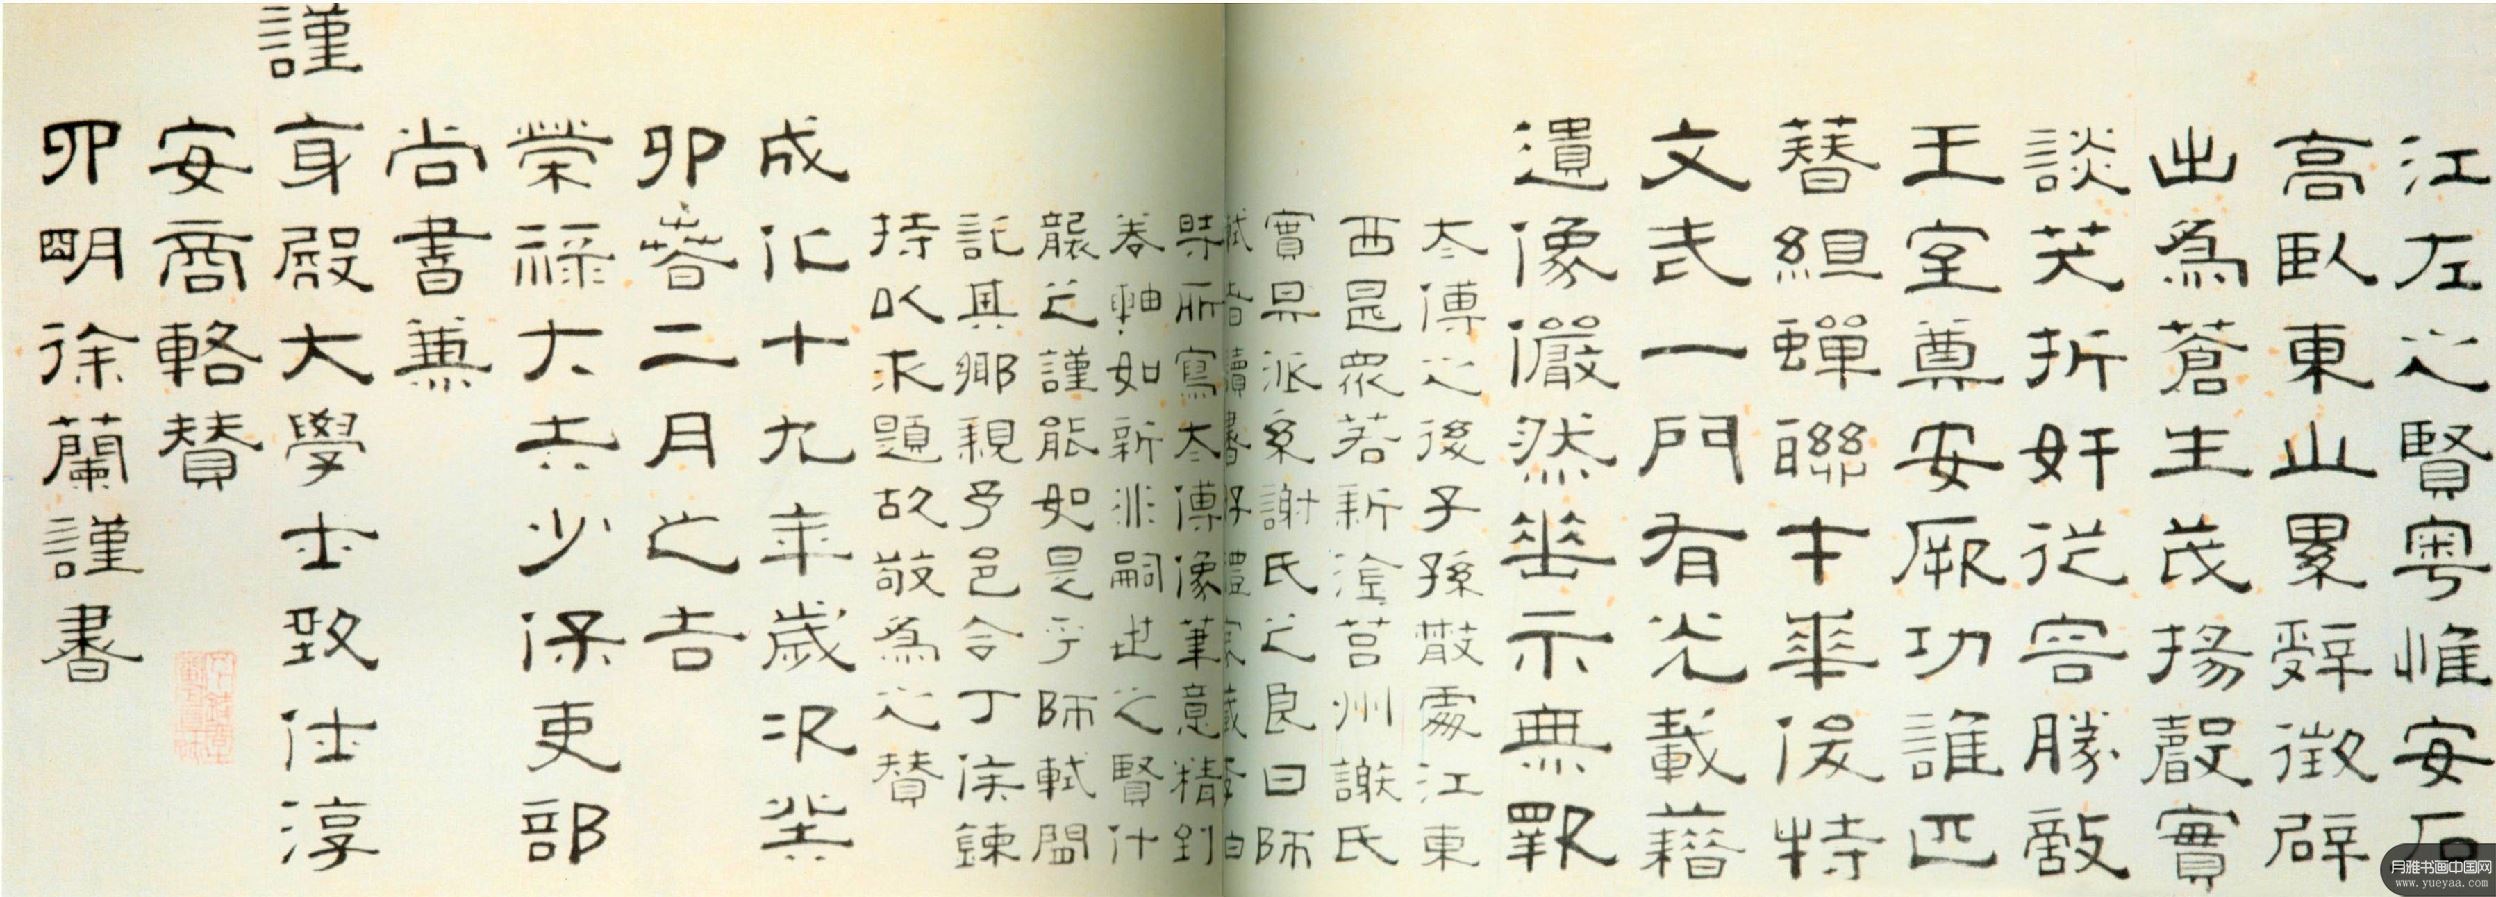 江左之賢粵惟安石
高臥東山累辭徵辟
出為蒼生茂揚聲實
談笑折奸從容勝敵
王室奠安厥功誰匹
簪組蟬聯才華俊特
文武一門有光載籍
遺像儼然垂示無斁
太傅之後子孫散處江東
西最眾若新淦莒州謝氏
實其派系謝氏之良曰師
軾者讀書好禮家藏李伯
時所寫太傅像筆意精到
卷軸如新非嗣世之賢什
襲之謹能如是乎師軾間
託其鄉親予邑令丁侯鍊
持以求題故敬為之贊
成化十九年歲次癸
卯春二月之吉
榮祿大夫少保吏部
尚書兼
謹身殿大學士致仕淳
安商輅贊
四明徐蘭謹書
月雅书画中国网
www.yueyaa.com